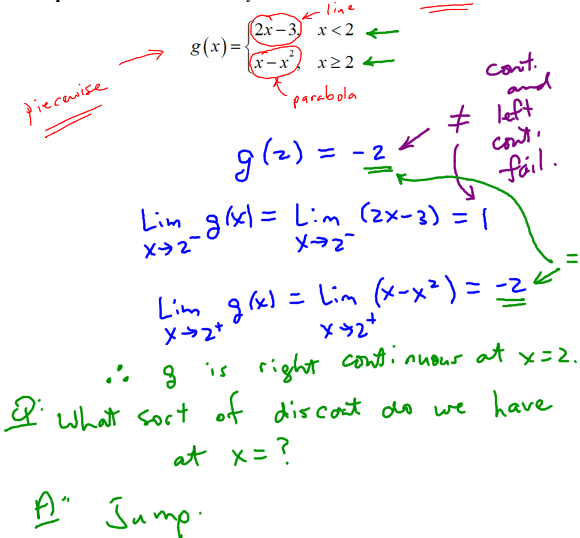 line
g(x) = { 2x − 3, x < 2
x − x², x ≥ 2
piecewise
parabola
cont.
and
left
cont.
fail.
g(2) = −2 ≠
Lim x→2⁻ g(x) = Lim x→2⁻ (2x−3) = 1
=
Lim x→2⁺ g(x) = Lim x→2⁺ (x−x²) = −2
∴ g is right continuous at x=2.
Q: What sort of discont do we have
at x = ?
A: Jump.